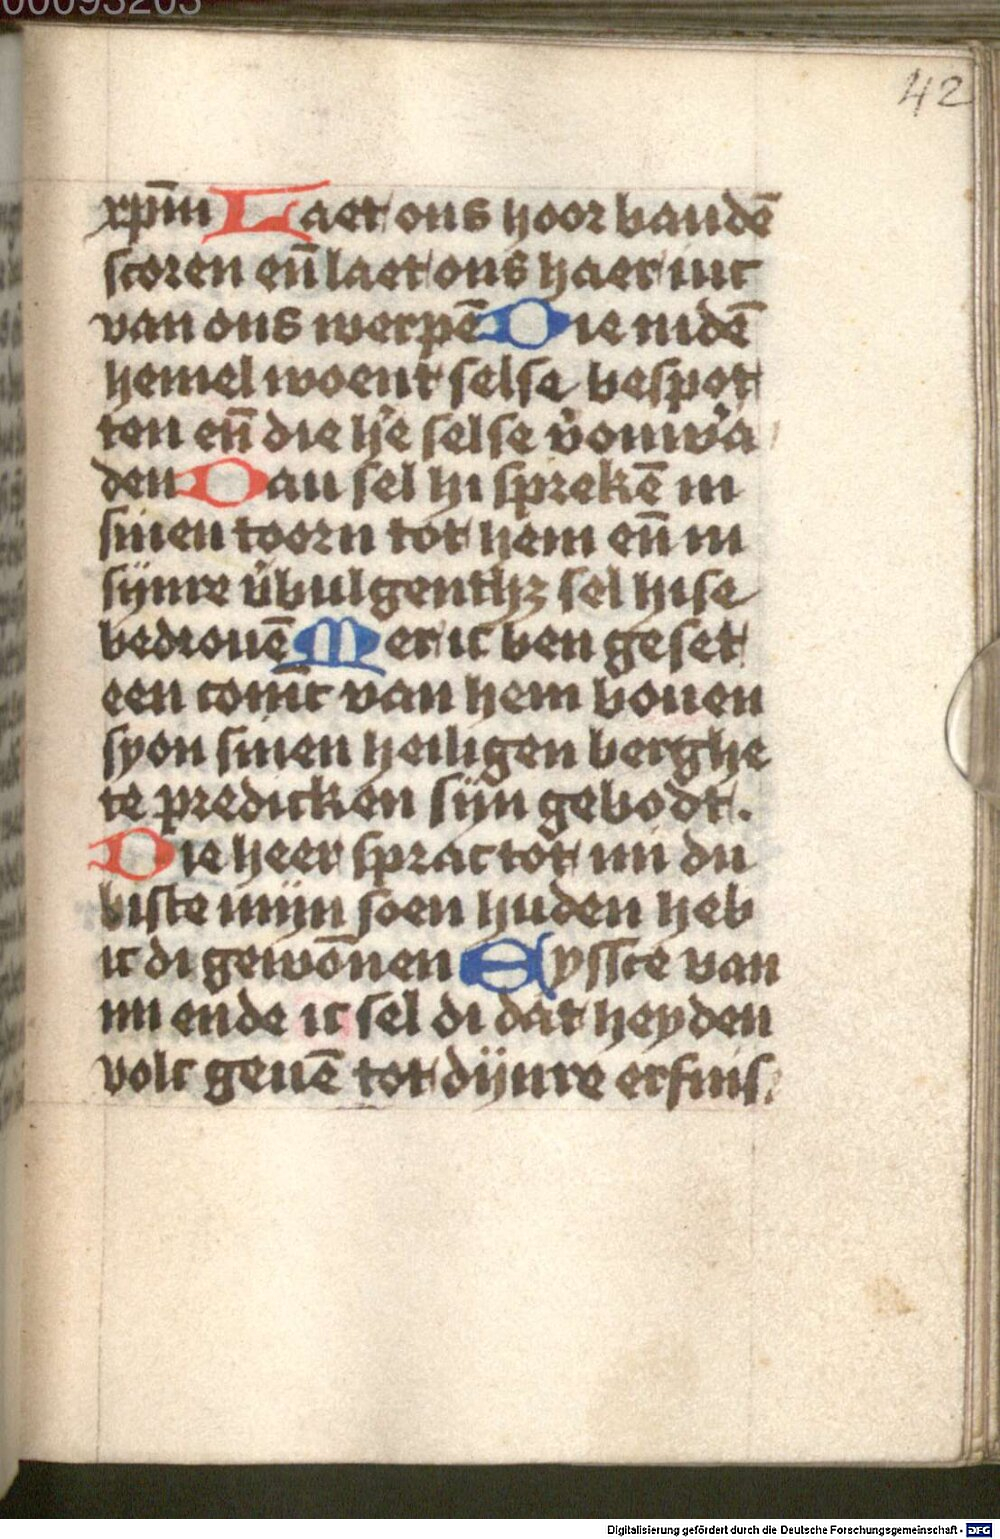 00093203
42
xp̄m Laet ons hoor bandē
scoren en̄ laet ons haer iuc
van ons werpē Die in dē
hemel woent selse bespot
ten en̄ die he̓e selse v̓onwa̓
den Dan sel hi sprekē in
sinen toorn tot hem en̄ in
sijnre v̓bulgenthꝫ sel hise
bedrouē Mer ic ben geset
een coninc van hem bouen
syon sinen heiligen berghe
te predicken sijn gebodt.
Die heer sprac tot mi du
biste mijn soen huden heb
ic di gewōnen Eyssce van
mi ende ic sel di dat heyden
volc geuē tot dijnre erfnis.
Digitalisierung gefördert durch die Deutsche Forschungsgemeinschaft - DFG